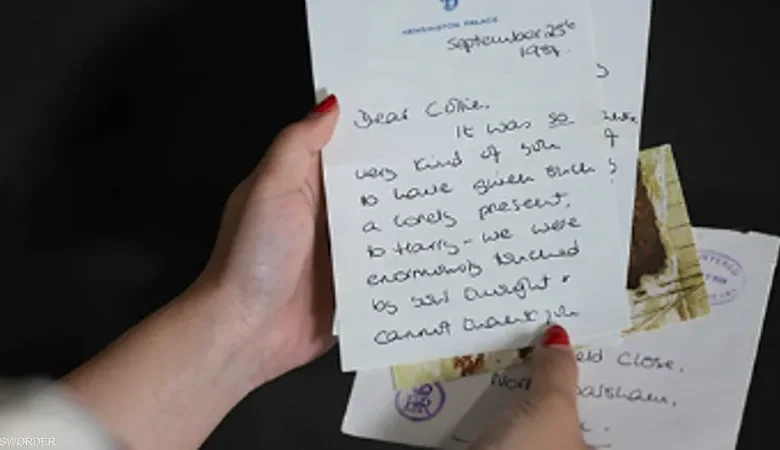 KENSINGTON PALACE
September 25th
1984.
Dear Collie.
It was so
very kind of you
to have given such
a lovely present,
to Harry - we were
enormously touched
by your thought &
cannot thank you
eld Close,
Nor alsham,
SWORDER